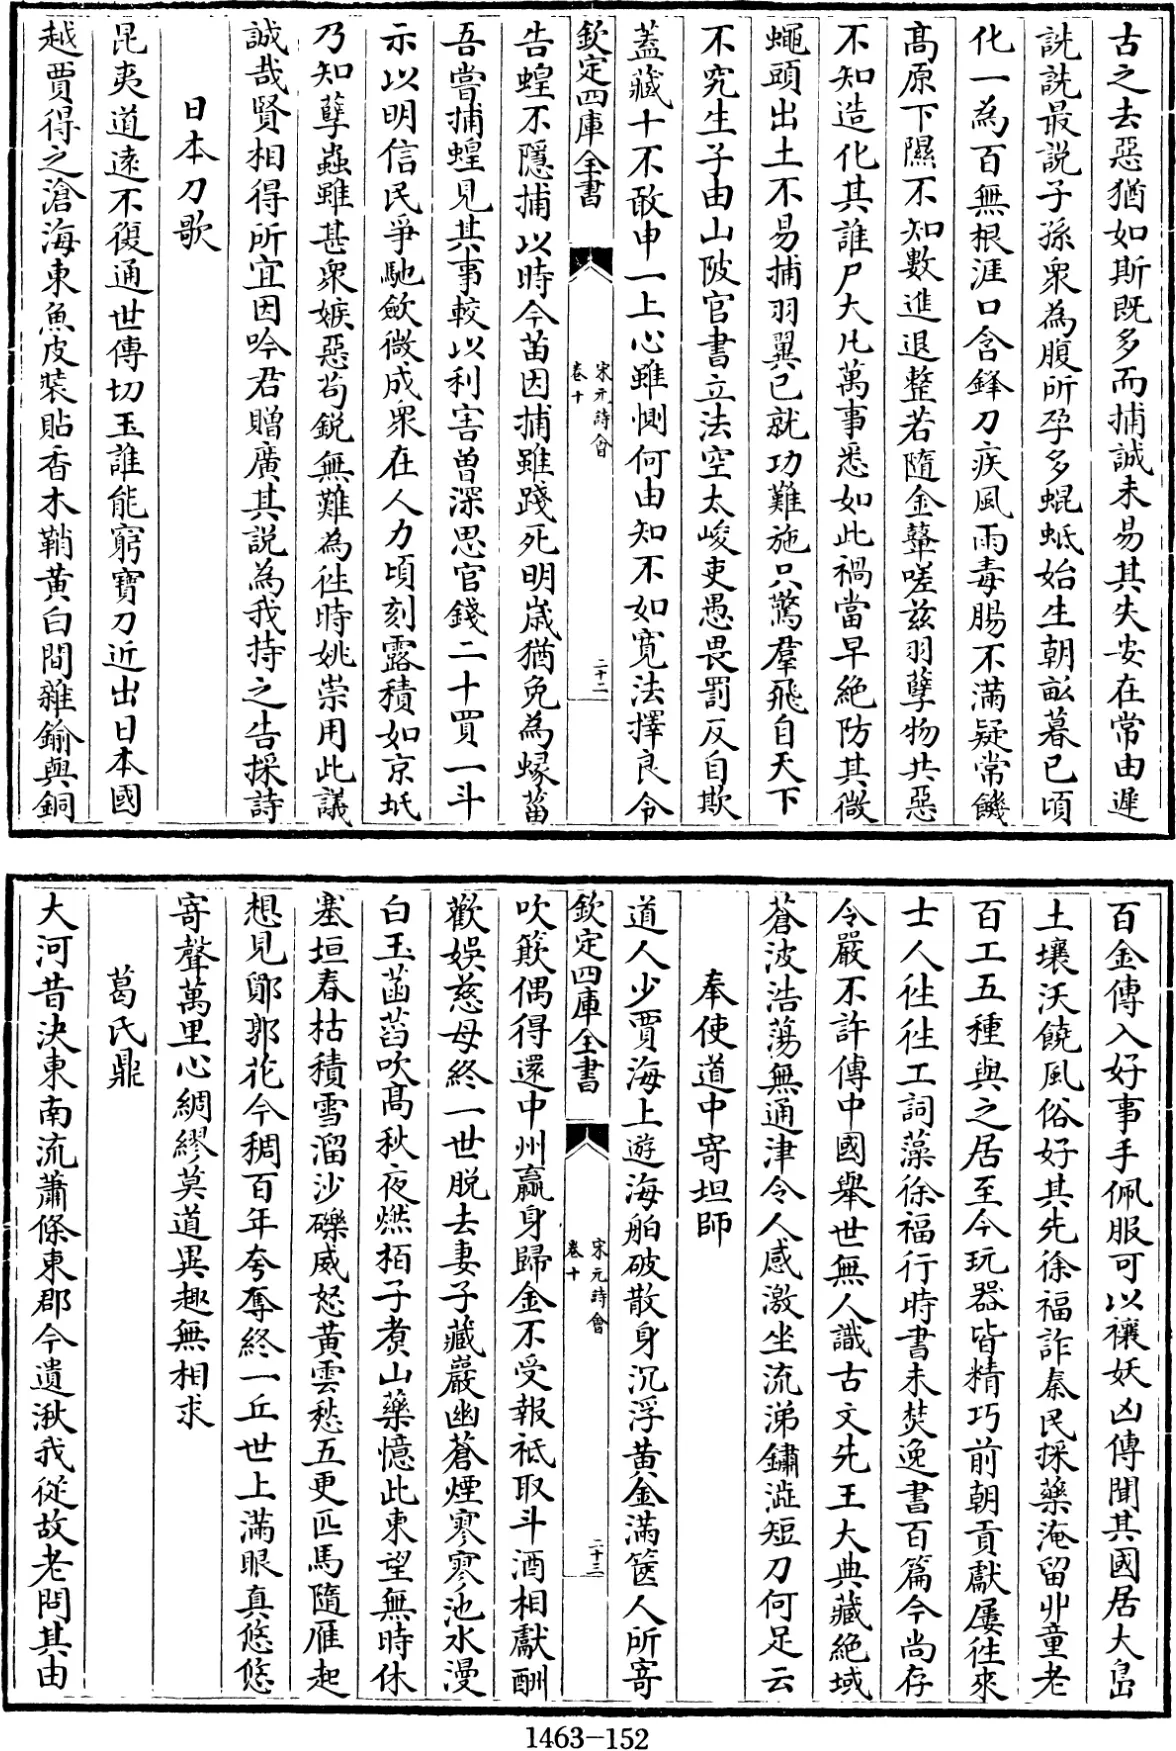 古之去惡猶如斯既多而捕誠未易其失安在常由遲
詵詵最説子孫衆為腹所孕多蜫蚳始生朝畝暮已頃
化一為百無根涯口含鋒刀疾風雨毒腸不滿疑常饑
髙原下隰不知數進退整若隨金鼙嗟兹羽孽物共惡
不知造化其誰尸大凡萬事悉如此禍當早絶防其微
蠅頭出土不易捕羽翼已就功難施只驚羣飛自天下
不究生子由山陂官書立法空太峻吏愚畏罰反自欺
蓋藏十不敢申一上心雖惻何由知不如寛法擇良令
欽定四庫全書
宋元詩會
卷十
二十二
告蝗不隱捕以時今苗因捕雖踐死明嵗猶免為蝝菑
吾嘗捕蝗見其事較以利害曽深思官錢二十買一斗
示以明信民爭馳歛微成衆在人力頃刻露積如京坻
乃知孽蟲雖甚衆嫉惡苟銳無難為徃時姚崇用此議
誠哉賢相得所宜因吟君贈廣其説為我持之告採詩
日本刀歌
昆夷道逺不復通世傳切玉誰能窮寶刀近出日本國
越賈得之滄海東魚皮裝貼香木鞘黄白間雜鍮與銅
百金傳入好事手佩服可以禳妖凶傳聞其國居大島
土壤沃饒風俗好其先徐福詐秦民採藥淹留丱童老
百工五種與之居至今玩器皆精巧前朝貢獻屢徃來
士人徃徃工詞藻徐福行時書未焚逸書百篇今尚存
令嚴不許傳中國舉世無人識古文先王大典藏絶域
蒼波浩蕩無通津令人感激坐流涕鏽澁短刀何足云
奉使道中寄坦師
道人少賈海上遊海舶破散身沉浮黄金滿篋人所寄
欽定四庫全書
宋元詩會
卷十
二十三
吹簸偶得還中州羸身歸金不受報祗取斗酒相獻酬
歡娛慈母終一世脱去妻子藏巖幽蒼煙寥寥池水漫
白玉菡萏吹髙秋夜燃栢子煑山藥憶此東望無時休
塞垣春枯積雪溜沙礫威怒黄雲愁五更匹馬隨雁起
想見鄮郭花今稠百年夸奪終一丘世上滿眼真悠悠
寄聲萬里心綢繆莫道異趣無相求
葛氏鼎
大河昔決東南流蕭條東郡今遺湫我從故老問其由
1463-152